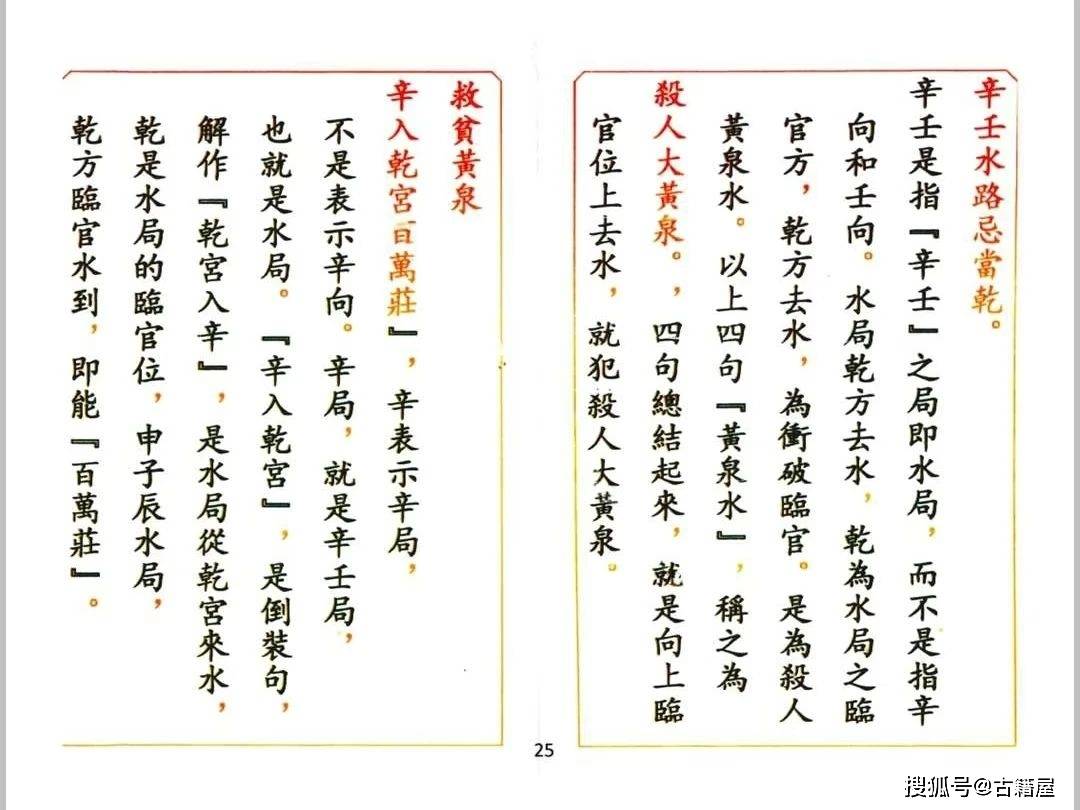 辛壬水路忌當乾。
辛壬是指『辛壬』之局即水局，而不是指辛
向和壬向。水局乾方去水，乾為水局之臨
官方，乾方去水，為衝破臨官。是為殺人
黃泉水。以上四句『黃泉水』，稱之為
殺人大黃泉。，四句總結起來，就是向上臨
官位上去水，就犯殺人大黃泉。
救貧黃泉
辛入乾宮百萬莊』，辛表示辛局，
不是表示辛向。辛局，就是辛壬局，
也就是水局。『辛入乾宮』，是倒裝句，
解作『乾宮入辛』，是水局從乾宮來水，
乾是水局的臨官位，申子辰水局，
乾方臨官水到，即能『百萬莊』。
25
搜狐号@古籍屋